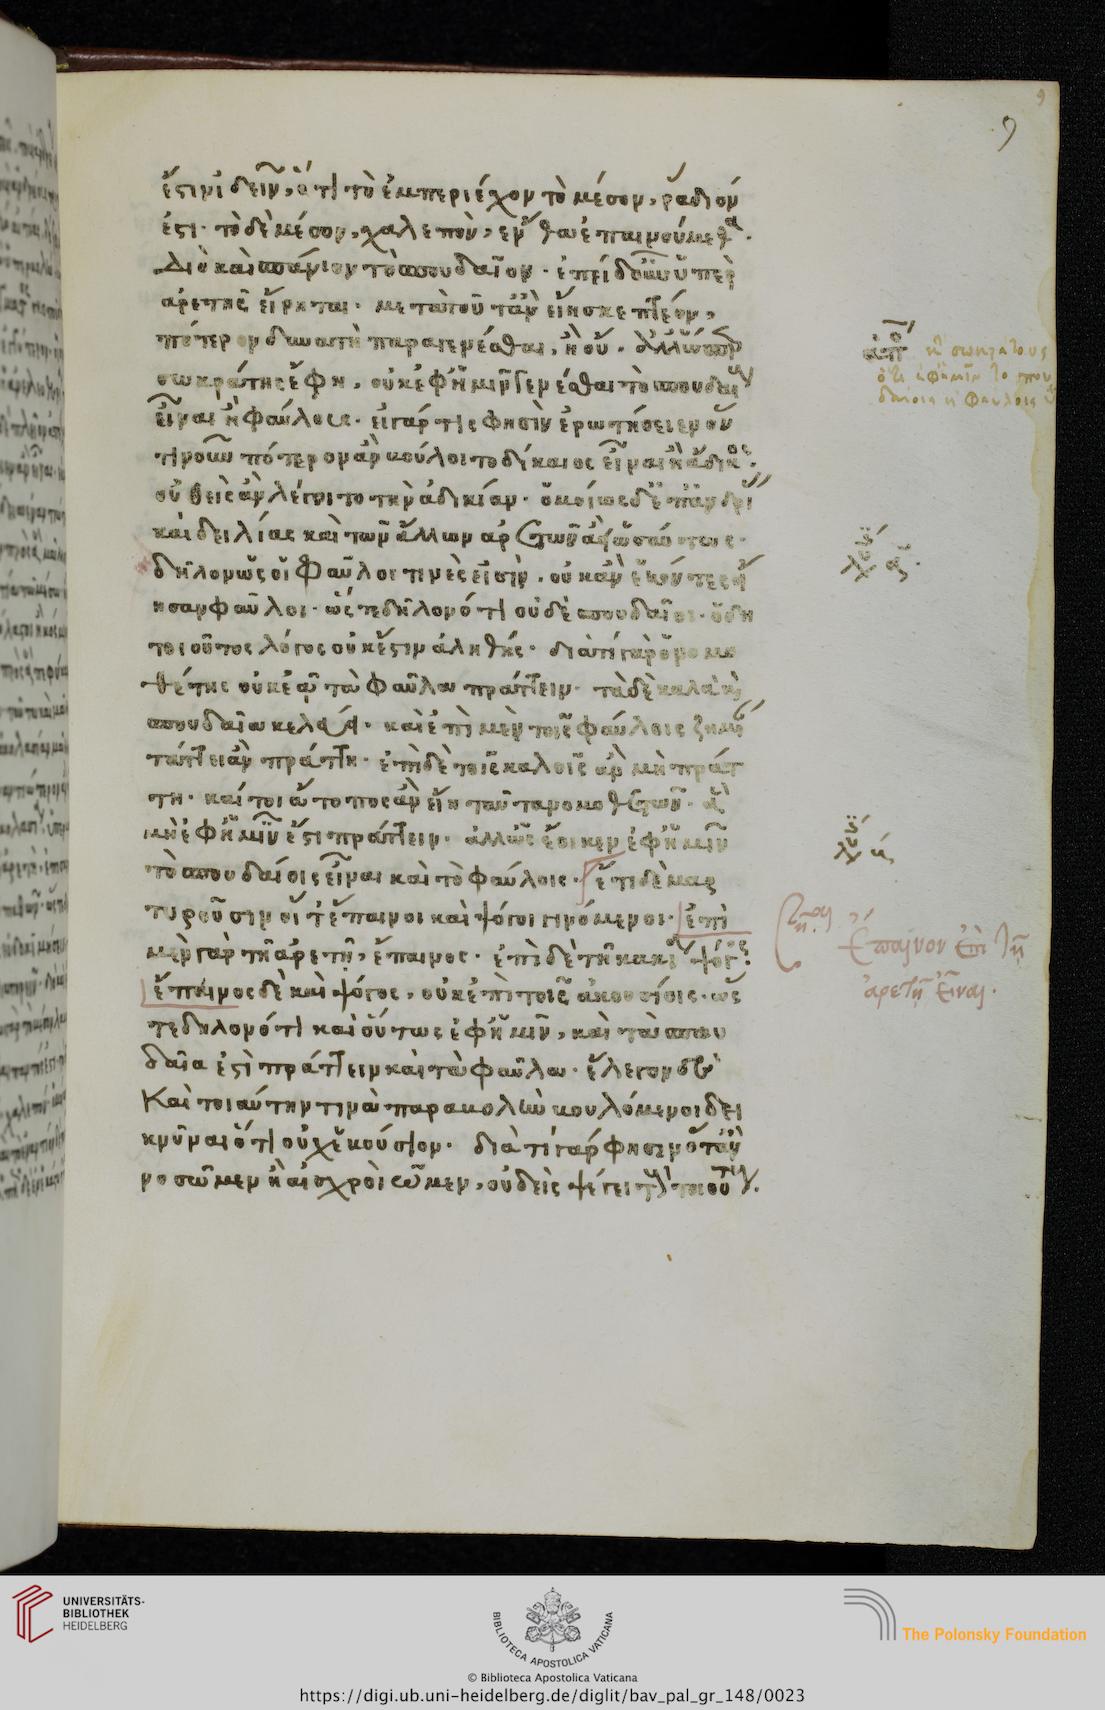 9
9
ἔστιν ἰδεῖν, ὅτι τὸ ἐμπεριέχον τὸ μέσον, ῥάδιόν
ἐστι· τὸ δὲ μέσον, χαλεπὸν, ἐν ᾧ ἐπαινούμεθα·
Διὸ καὶ σπάνιον τὸ σπουδαῖον· ἐπεὶ δ' οὖν ὑπὲρ
ἀρετῆς εἴρηται· μετὰ τοῦτ' ἂν εἴη σκεπτέον,
πότερον δυνατὴ παραγενέσθαι, ἢ οὔ· ἀλλ' ὥσπερ
σωκράτης ἔφη, οὐκ ἐφ' ἡμῖν γενέσθαι τὸ σπουδαίους
εἶναι ἢ φαύλους. εἰ γάρ τις φησὶν ἐρωτήσειεν ὅν
τινα οῦν πότερον ἂν βούλοιτο δίκαιος εἶναι ἢ ἄδικος·
οὐθεὶς ἂν ἕλοιτο τὴν ἀδικίαν· ὁμοίως δ' ἐπ' ἀνδρείας
καὶ δειλίας καὶ τῶν ἄλλων ἀρετῶν ἀεὶ ὡσαύτως·
δῆλον ὡς οἳ φαῦλοί τινές εἰσιν, οὐκ ἂν ἑκόντες εἴ
ησαν φαῦλοι· ὥστε δῆλον ὅτι οὐδὲ σπουδαῖοι· ὁ δὴ
τοιοῦτος λόγος οὐκ ἔστιν ἀληθής· διὰ τί γὰρ ὁ νομο
θέτης οὐκ ἐᾷ τὰ φαῦλα πράττειν· τὰ δὲ καλὰ καὶ
σπουδαῖα κελεύει· καὶ ἐπὶ μὲν τοῖς φαύλοις ζημίαν
τάττει ἂν πράττη· ἐπὶ δὲ τοῖς καλοῖς ἂν μὴ πράτ
τη· καίτοι ἄτοπος ἂν εἴη ταῦτα νομοθετῶν· ἃ
μὴ ἐφ' ἡμῖν ἐστι πράττειν· ἀλλ' ὡς ἔοικεν ἐφ' ἡμῖν
τὸ σπουδαίοις εἶναι καὶ τὸ φαύλοις· ἔτι δὲ μαρ
τυροῦσιν οἵ τ' ἔπαινοι καὶ ψόγοι γινόμενοι· ἐπὶ
μὲν γὰρ τῇ ἀρετῇ, ἔπαινος· ἐπὶ δὲ τῇ κακίᾳ ψόγος·
ἔπαινος δὲ καὶ ψόγος, οὐκ ἐπὶ τοῖς ἀκουσίοις· ὥσ
τε δῆλον ὅτι καὶ οὕτως ἐφ' ἡμῖν, καὶ τὰ σπου
δαῖα ἐστὶ πράττειν καὶ τὰ φαῦλα· ἔλεγον δὲ
Καὶ τοιαύτην τινὰ παραβολὴν βουλόμενοι δει
κνύναι ὅτι οὐχ ἑκούσιον· διὰ τί γάρ φησιν ὅταν
νοσῶμεν ἢ αἰσχροὶ ὦμεν, οὐδεὶς ψέγει τὸν τοιοῦτον.
σωκράτους
ὅτι ἐφ' ἡμῖν τὸ σπου
δαίοις ἢ φαύλοις
λύ αη.
λύ
ση.αι
Ἔπαινον ἐπὶ τῇ
ἀρετῇ εἶναι.
UNIVERSITÄTS-
BIBLIOTHEK
HEIDELBERG
BIBLIOTECA APOSTOLICA VATICANA
The Polonsky Foundation
© Biblioteca Apostolica Vaticana
https://digi.ub.uni-heidelberg.de/diglit/bav_pal_gr_148/0023